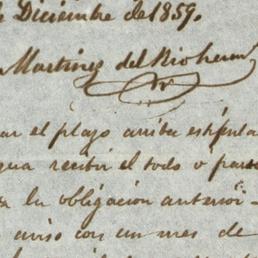 Diciembre de 1859.
Martinez del Rio herm
el plazo arriba estipula
recibir el todo o parte
la obligacion anterior
aviso con un mes de